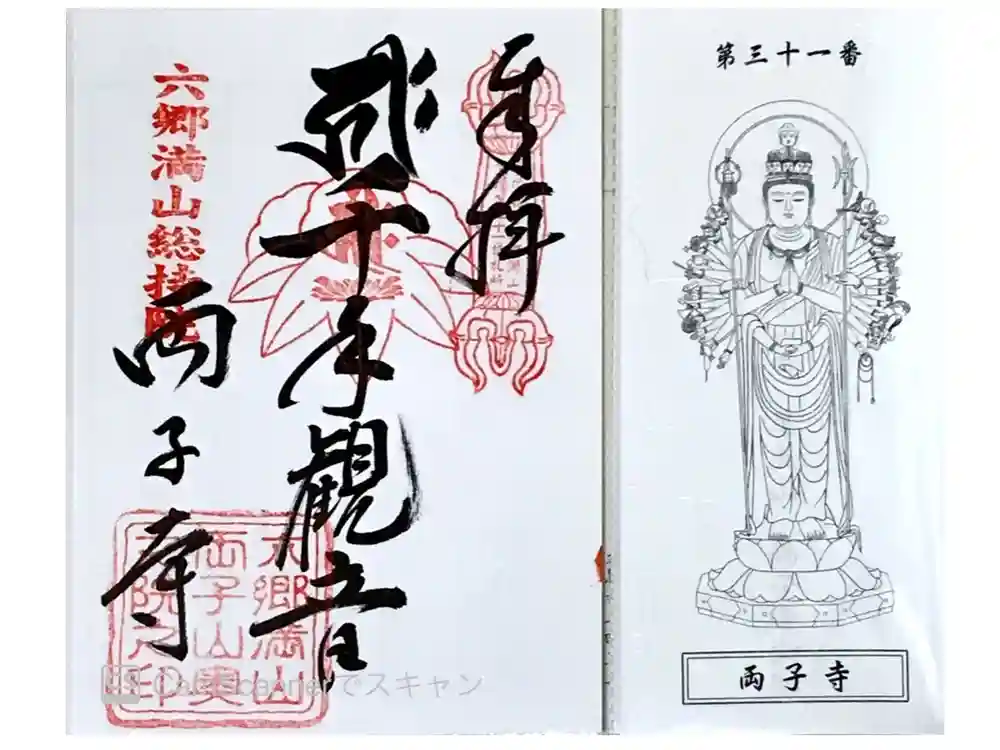 奉拝
千手観音
六郷満山総持院
両子寺
六郷満山
両子山奥
之院之印
第三十一番
両子寺
CS CamScannerでスキャン